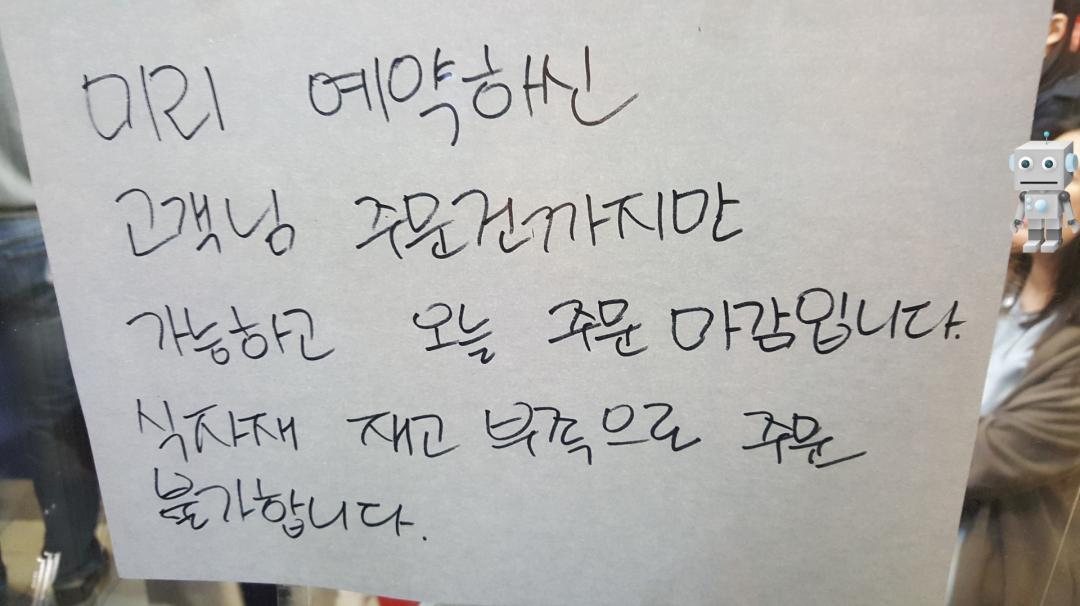 미리 예약해신
고객닝 주문건까지만
가능하고 오늘 주문 마감입니다.
식자재 재고 부족으로 주문
불가합니다.